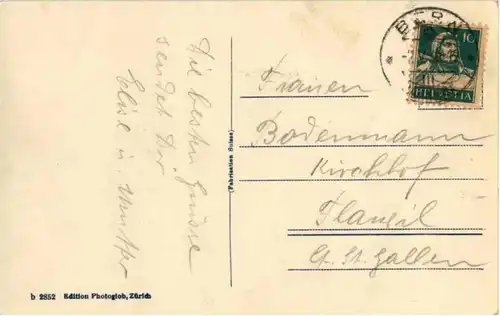 Die besten Grüsse
sendet Dir
Elise u. Mutter
Frauen
Bodenmann
Kirchhof
Flawil
Ct. St. Gallen
(Fabrication Suisse)
b 2852 Edition Photoglob, Zürich
BERN
10
HELVETIA